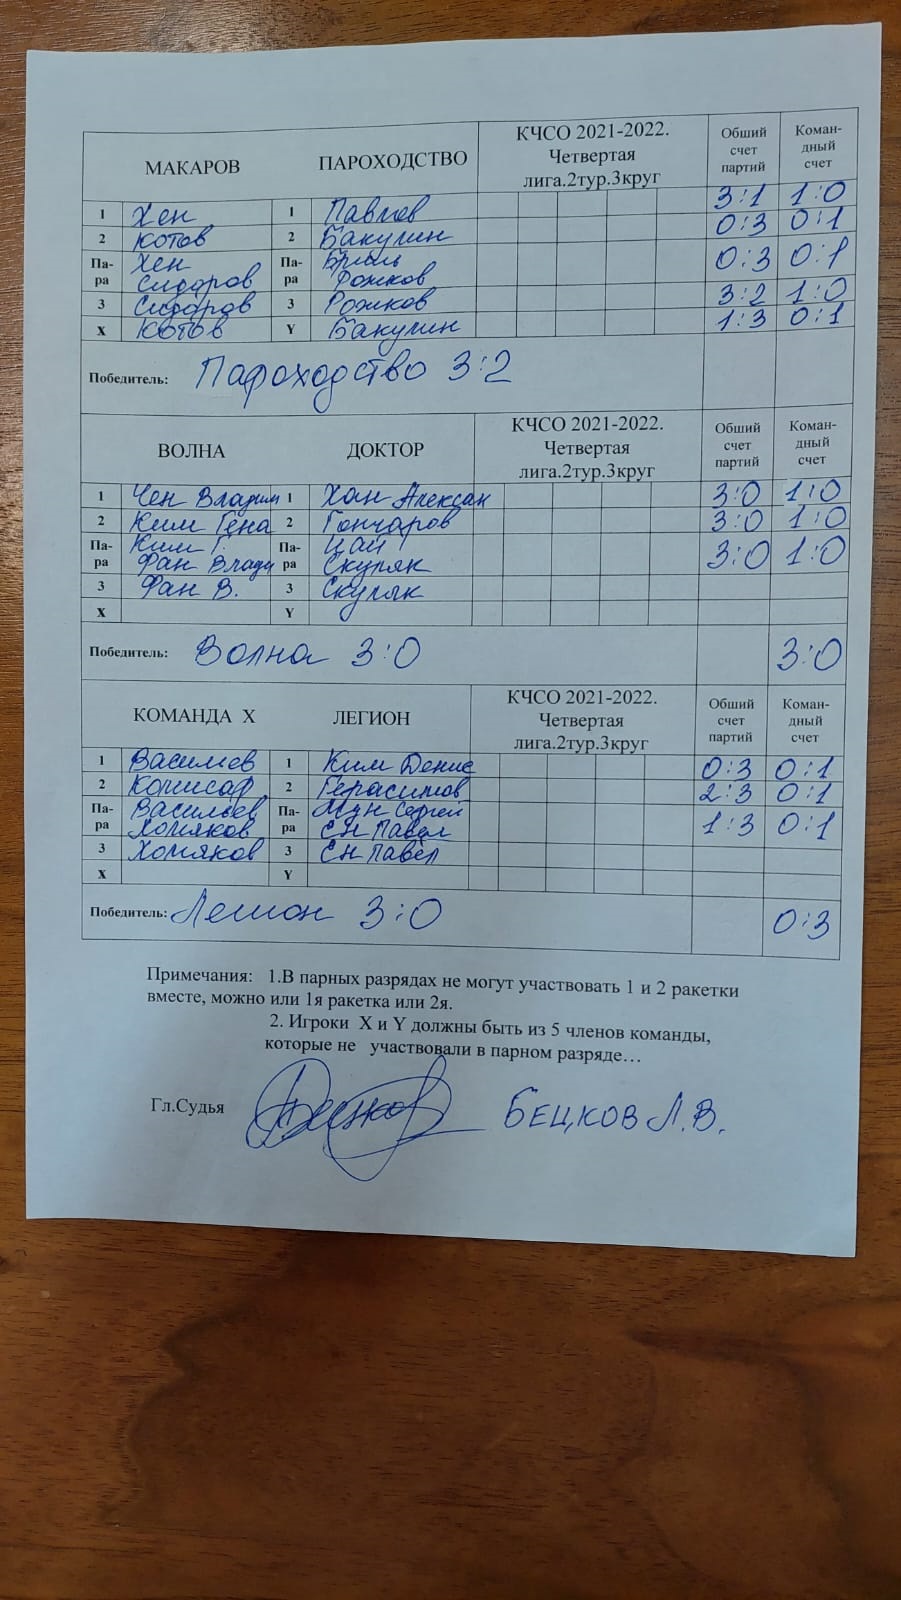 МАКАРОВ ПАРОХОДСТВО КЧСО 2021-2022. Четвертая лига.2тур.3круг Обший счет партий Коман-дный счет
1 Хен 1 Павлов 3:1 1:0
2 Котов 2 Бакулин 0:3 0:1
Па-ра Хен Сидоров Па-ра Бриль Рожков 0:3 0:1
3 Сидоров 3 Рожков 3:2 1:0
X Котов Y Бакулин 1:3 0:1
Победитель: Пароходство 3:2
ВОЛНА ДОКТОР КЧСО 2021-2022. Четвертая лига.2тур.3круг Обший счет партий Коман-дный счет
1 Чен Владим 1 Хан Алексан 3:0 1:0
2 Ким Гена 2 Гончаров 3:0 1:0
Па-ра Ким Г. Фан Влади Па-ра Цай Скуляк 3:0 1:0
3 Фан В. 3 Скуляк
X Y
Победитель: Волна 3:0 3:0
КОМАНДА Х ЛЕГИОН КЧСО 2021-2022. Четвертая лига.2тур.3круг Обший счет партий Коман-дный счет
1 Васильев 1 Ким Денис 0:3 0:1
2 2 Герасимов 2:3 0:1
Па-ра Васильев Хомяков Па-ра Мун Сергей Ен Павел 1:3 0:1
3 Хомяков 3 Ен Павел
X Y
Победитель: Легион 3:0 0:3
Примечания: 1.В парных разрядах не могут участвовать 1 и 2 ракетки
вместе, можно или 1я ракетка или 2я.
2. Игроки X и Y должны быть из 5 членов команды,
которые не участвовали в парном разряде…
Гл.Судья БЕЦКОВ Л.В.